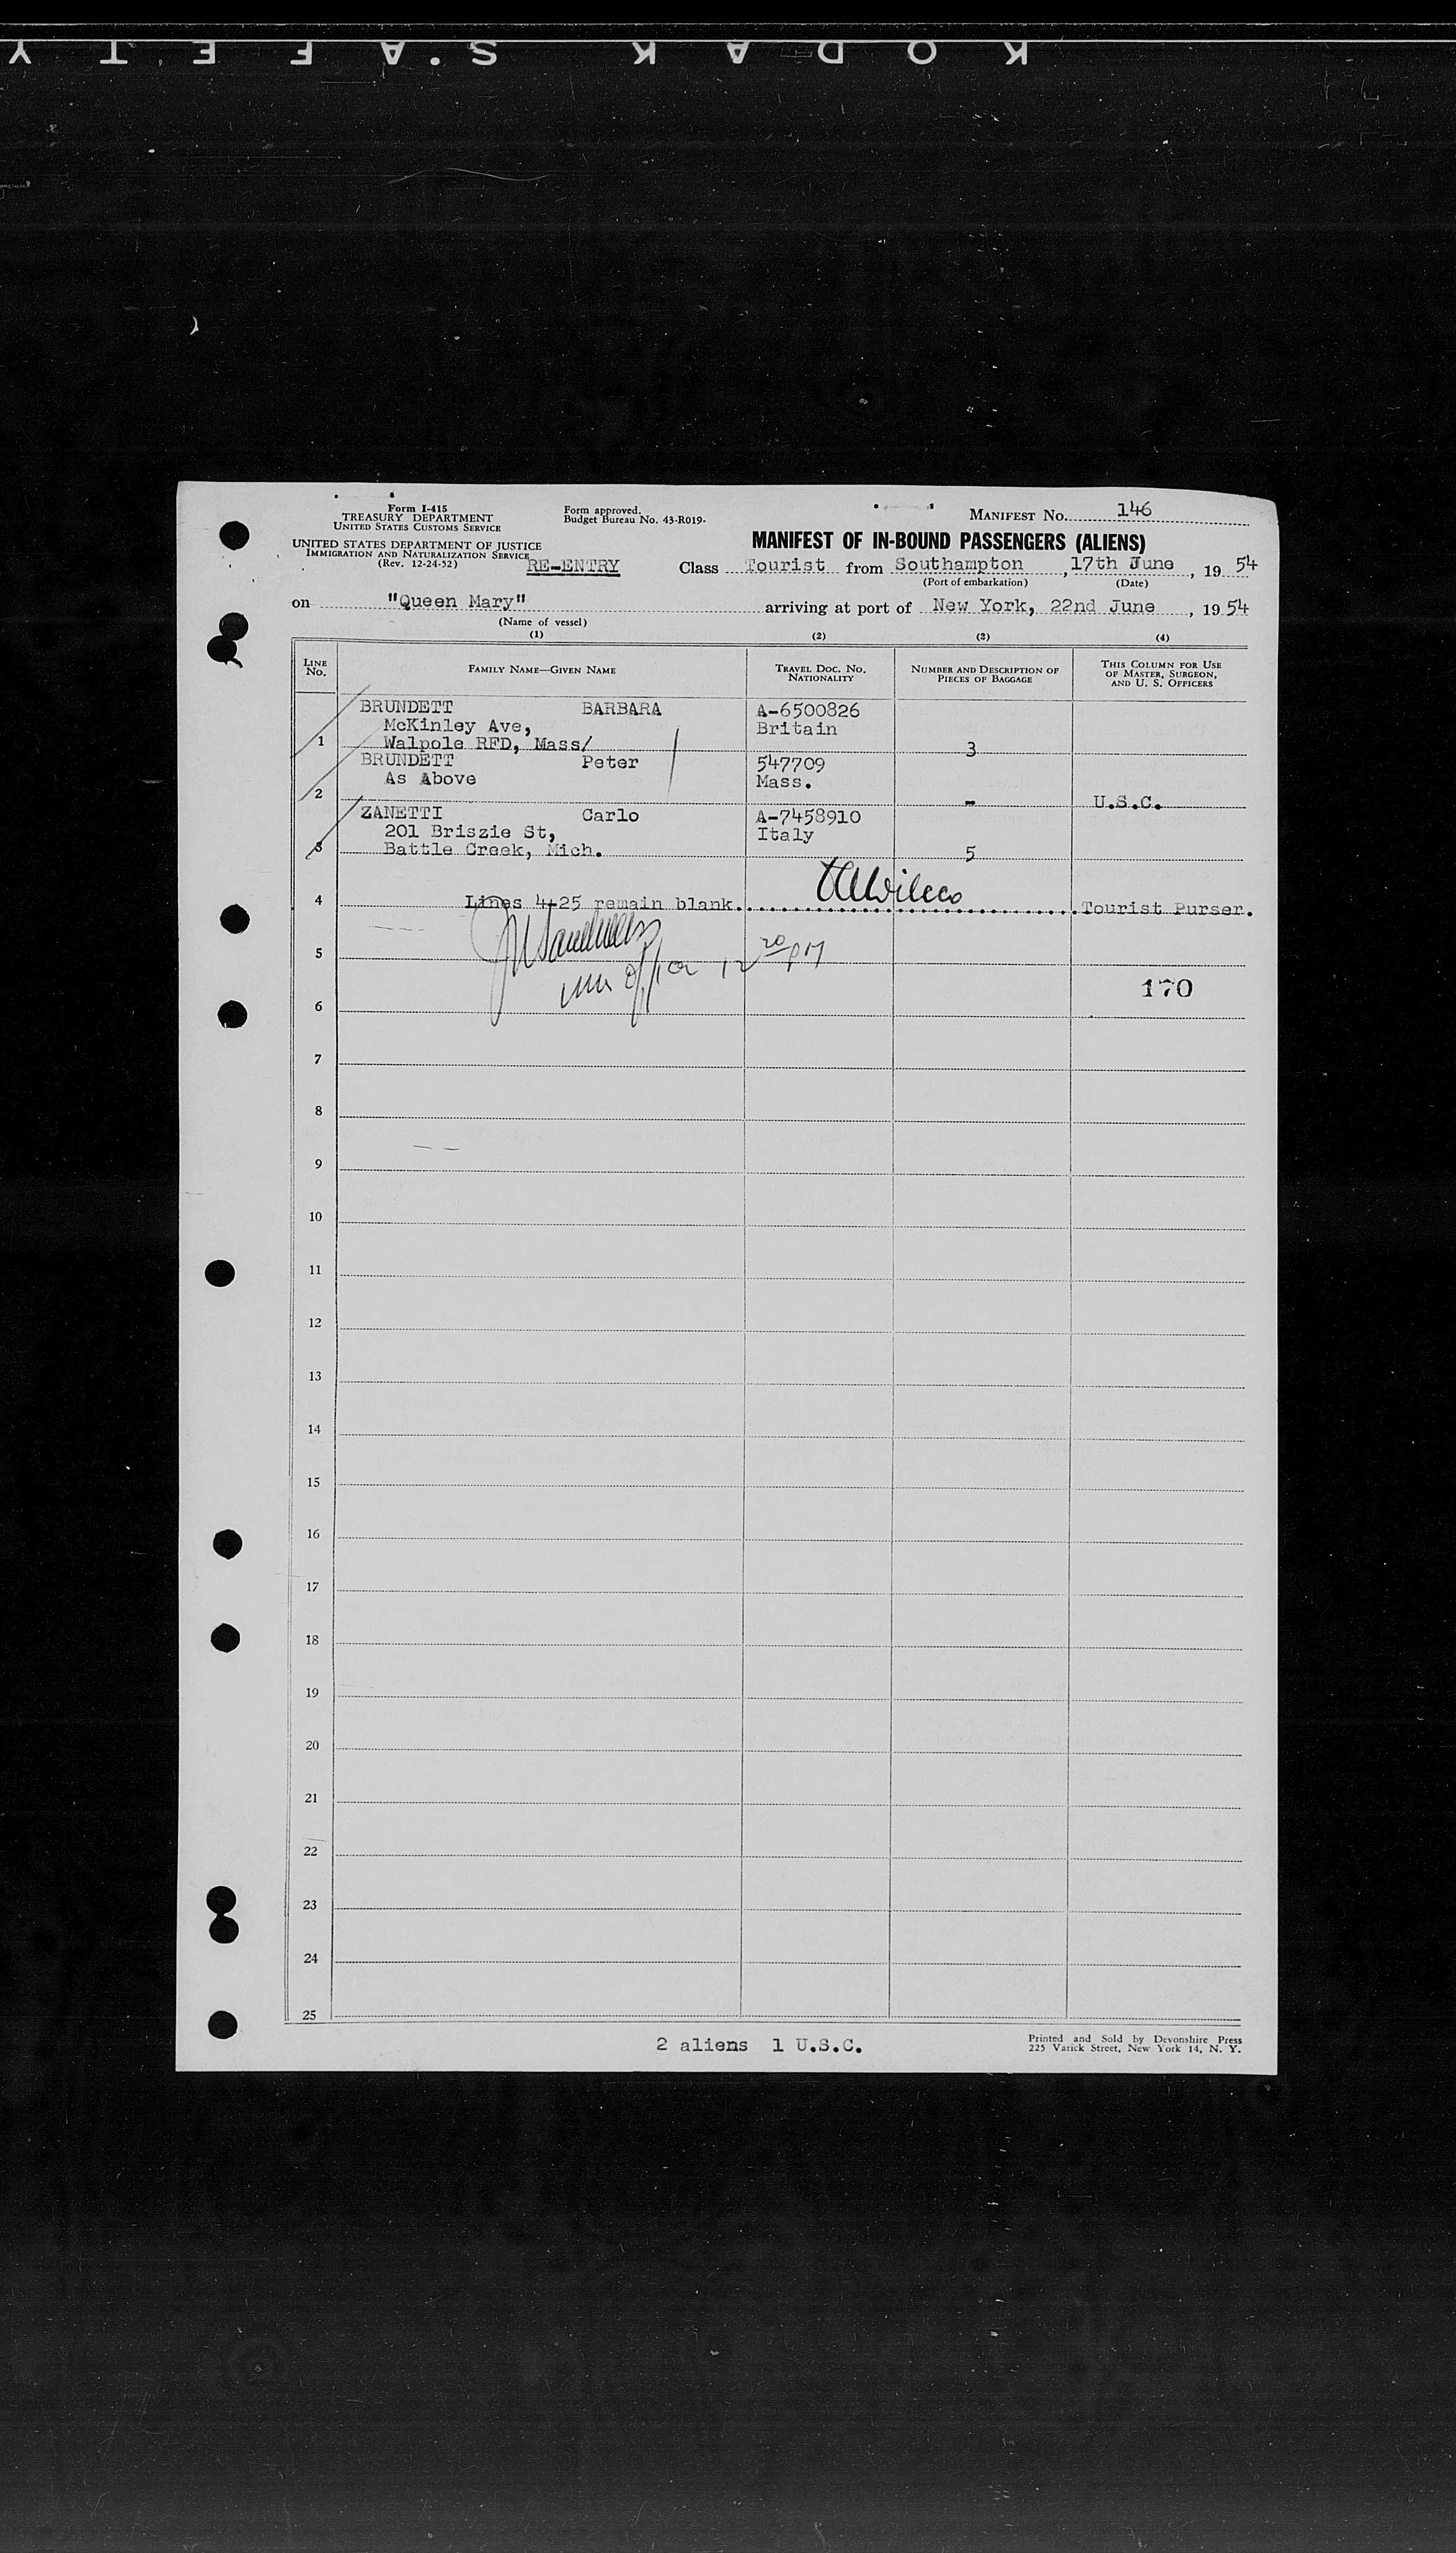 KODAK S.A F E T Y
Form I-415
TREASURY DEPARTMENT
UNITED STATES CUSTOMS SERVICE
Form approved.
Budget Bureau No. 43-R019-
MANIFEST No. 146
UNITED STATES DEPARTMENT OF JUSTICE
IMMIGRATION AND NATURALIZATION SERVICE
(Rev. 12-24-52)
RE-ENTRY
MANIFEST OF IN-BOUND PASSENGERS (ALIENS)
Class Tourist from Southampton, 17th June, 1954
(Port of embarkation) (Date)
on "Queen Mary" arriving at port of New York, 22nd June, 1954
(Name of vessel)
(1) (2) (3) (4)
LINE No. FAMILY NAME—GIVEN NAME TRAVEL DOC. No. NATIONALITY NUMBER AND DESCRIPTION OF PIECES OF BAGGAGE THIS COLUMN FOR USE OF MASTER, SURGEON, AND U. S. OFFICERS
BRUNDETT BARBARA A-6500826
McKinley Ave, Britain
1 Walpole RFD, Mass/ 3
BRUNDETT Peter 547709
As Above Mass.
2 - U.S.C.
ZANETTI Carlo A-7458910
201 Briszie St, Italy
3 Battle Creek, Mich. 5
4 Lines 4-25 remain blank. Tourist Purser.
5 12 20 PM
170
6
7
8
9
10
11
12
13
14
15
16
17
18
19
20
21
22
23
24
25
2 aliens 1 U.S.C.
Printed and Sold by Devonshire Press
225 Varick Street, New York 14, N. Y.